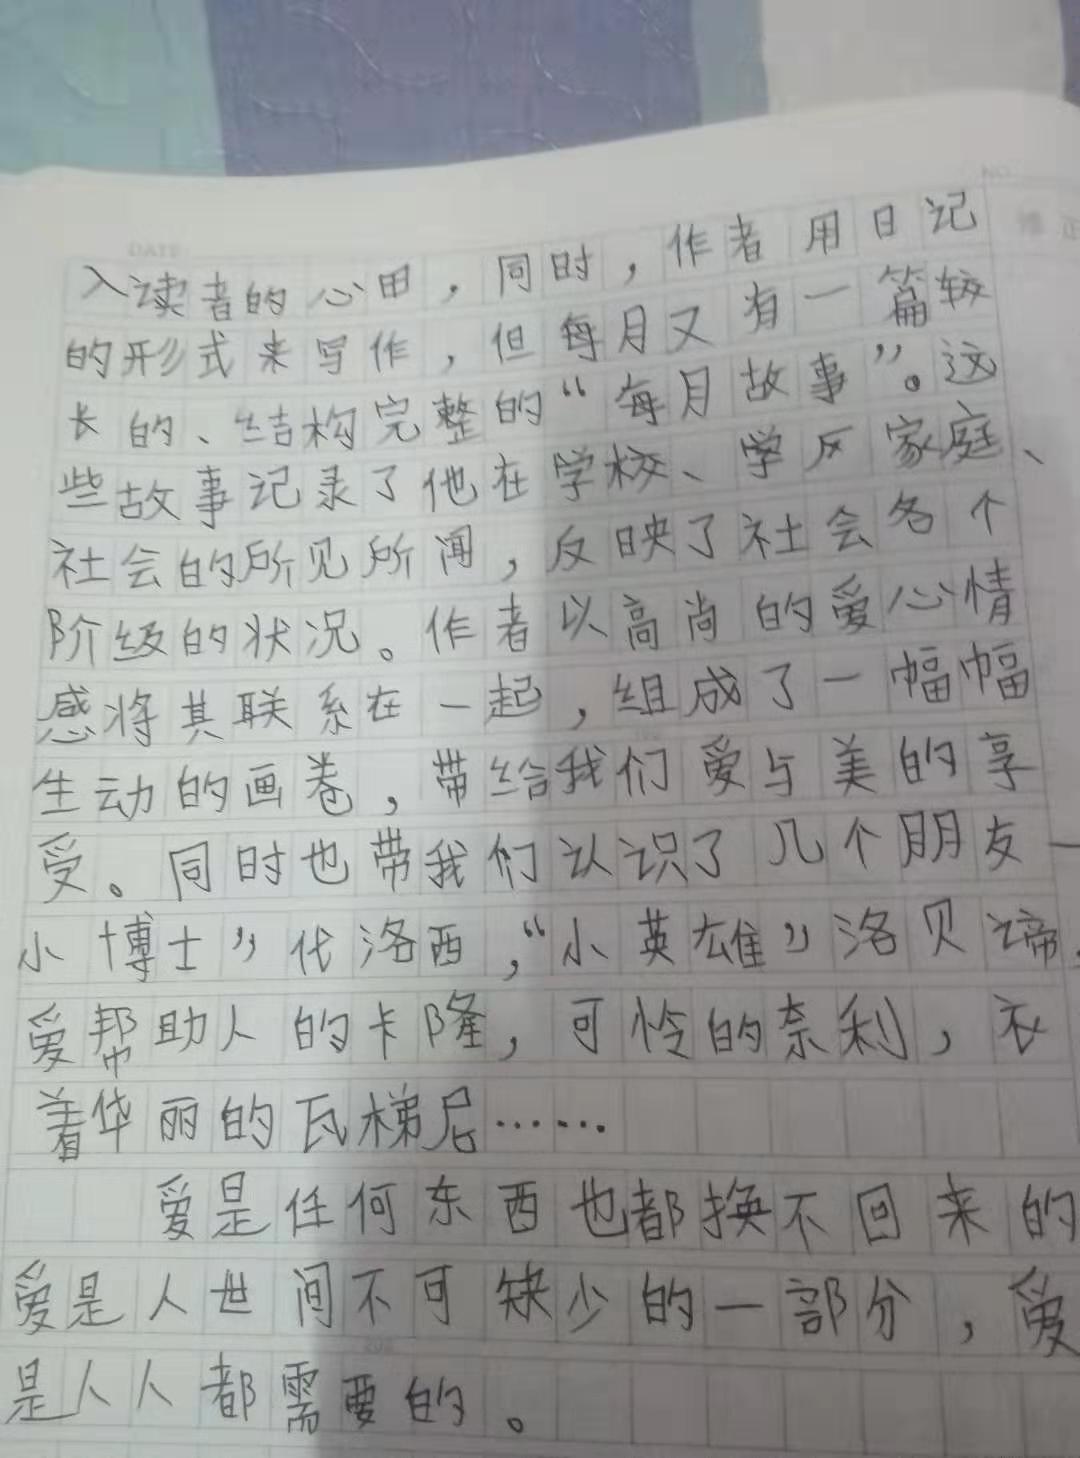 DATE
NO
入读者的心田，同时，作者用日记
的形式来写作，但每月又有一篇较
长的、结构完整的“每月故事”。这
些故事记录了他在学校、学反家庭、
社会的所见所闻，反映了社会各个
阶级的状况。作者以高尚的爱心情
感将其联系在一起，组成了一幅幅
生动的画卷，带给我们爱与美的享
受。同时也带我们认识了几个朋友—
小博士”代洛西，“小英雄”洛贝谛，
爱帮助人的卡隆，可怜的奈利，衣
着华丽的瓦梯尼……
爱是任何东西也都换不回来的
爱是人世间不可缺少的一部分，爱
是人人都需要的。